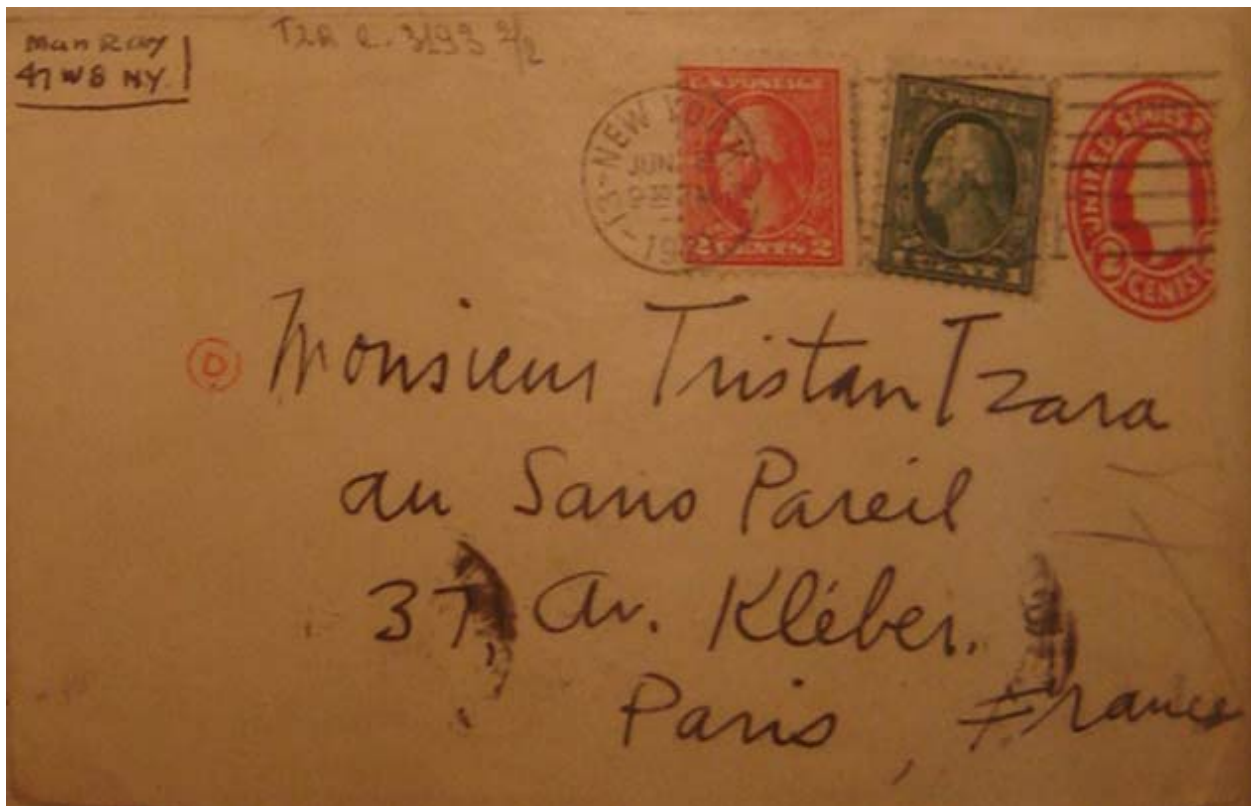 Man Ray
47 W 8 NY.
TZR C. 3193 2/2
13-NEW YORK
JUN
U.S. POSTAGE
2 CENTS 2
U.S. POSTAGE
1 CENT 1
UNITED STATES
2 CENTS
D
Monsieur Tristan Tzara
au Sans Pareil
37, Av. Kléber.
Paris, France